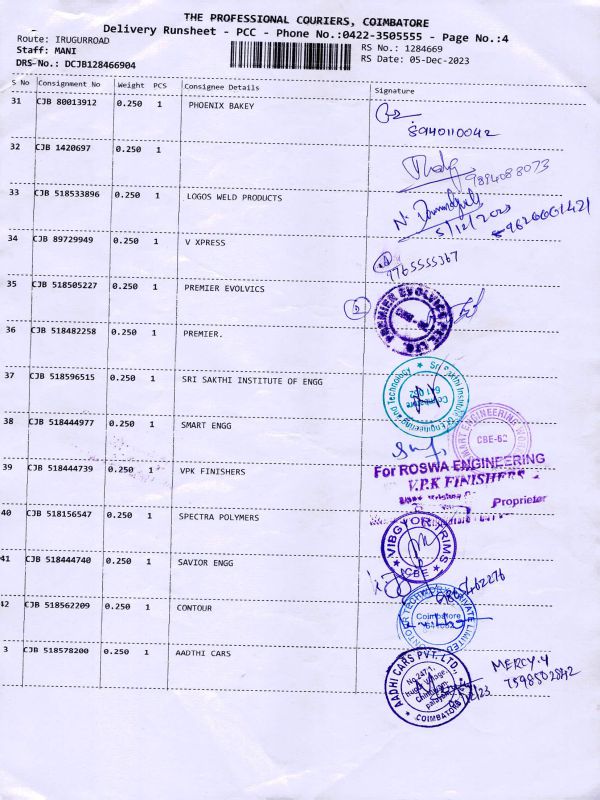 THE PROFESSIONAL COURIERS, COIMBATORE
Delivery Runsheet - PCC - Phone No.:0422-3505555 - Page No.:4
Route: IRUGURROAD
RS No.: 1284669
Staff: MANI
RS Date: 05-Dec-2023
DRS-No.: DCJB128466904
S No Consignment No Weight PCS Consignee Details Signature
31 CJB 80013912 0.250 1 PHOENIX BAKEY
8940110042
32 CJB 1420697 0.250 1
9894088073
33 CJB 518533896 0.250 1 LOGOS WELD PRODUCTS
5/12/2023 9626661421
34 CJB 89729949 0.250 1 V XPRESS
9765555367
35 CJB 518505227 0.250 1 PREMIER EVOLVICS
PREMIER EVOLVICS PVT. LTD.
36 CJB 518482258 0.250 1 PREMIER.
37 CJB 518596515 0.250 1 SRI SAKTHI INSTITUTE OF ENGG
Sri Sakthi Institute of Engineering and Technology
Coimbatore
641 062
38 CJB 518444977 0.250 1 SMART ENGG
SMART ENGINEERING
CBE-62
For ROSWA ENGINEERING
39 CJB 518444739 0.250 1 VPK FINISHERS
V.P.K FINISHERS
Proprietor
40 CJB 518156547 0.250 1 SPECTRA POLYMERS
VIBGYOR TRIMS
CBE
41 CJB 518444740 0.250 1 SAVIOR ENGG
42 CJB 518562209 0.250 1 CONTOUR
Coimbatore
PRIVATE LIMITED
3 CJB 518578200 0.250 1 AADTHI CARS
AADHI CARS PVT. LTD.,
COIMBATORE
MERCY.Y
7598502842